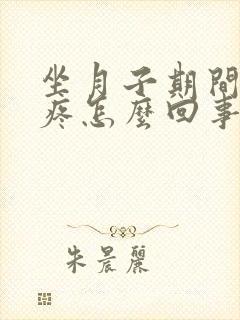 坐月子期間
疼怎麼回事
朱晨麗